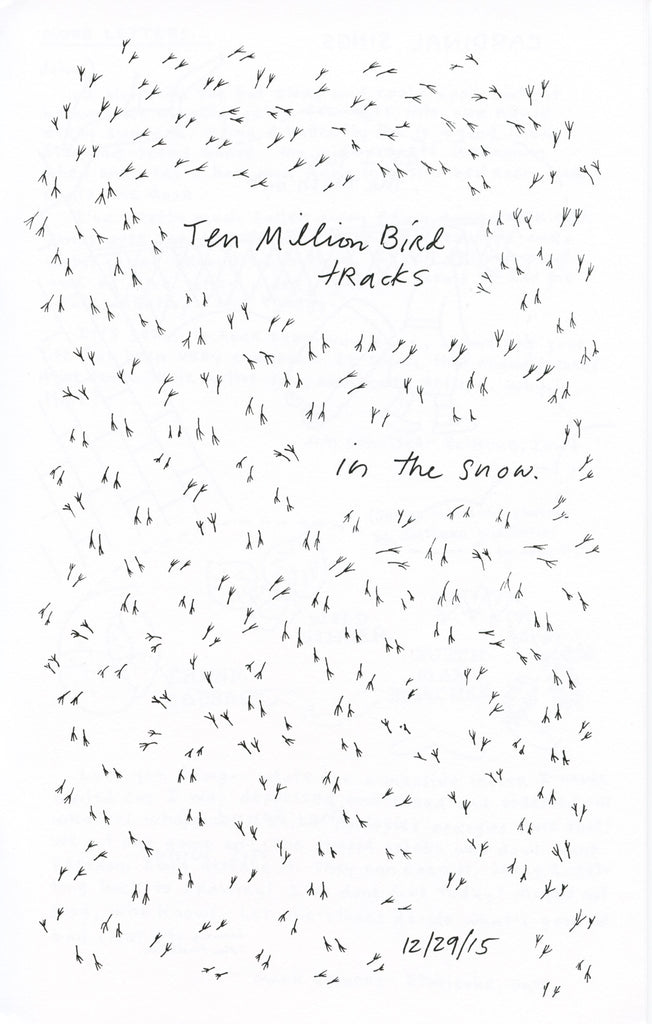 Ten Million Bird
tracks
in the snow.
12/29/15